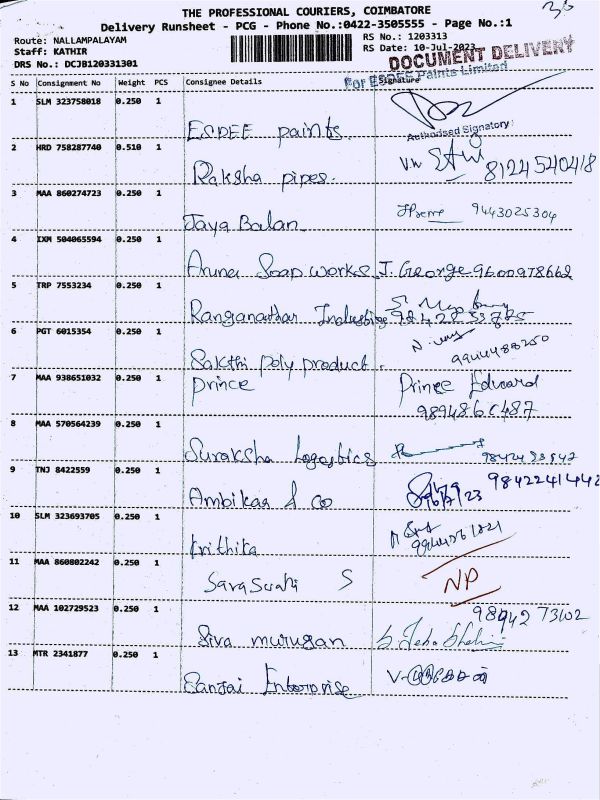 36
THE PROFESSIONAL COURIERS, COIMBATORE
Delivery Runsheet - PCG - Phone No.:0422-3505555 - Page No.:1
Route: NALLAMPALAYAM RS No.: 1203313
Staff: KATHIR RS Date: 10-Jul-2023
DRS No.: DCJB120331301 DOCUMENT DELIVERY
For ESDEE Paints Limited
S No Consignment No Weight PCS Consignee Details Signature
1 SLM 323758018 0.250 1
ESDEE paints. Authorised Signatory
2 HRD 758287740 0.510 1
Raksha pipes. 8124540418
3 MAA 860274723 0.250 1
Jaya Balan 9443025304
4 IXM 504065594 0.250 1
Aruna Soap works J. George 9600978662
5 TRP 7553234 0.250 1
Ranganathar Industries
6 PGT 6015354 0.250 1
Sakthi poly product. 9944488250
7 MAA 938651032 0.250 1 prince Prince Edward
8 MAA 570564239 0.250 1
Suraksha Logostics
9 TNJ 8422559 0.250 1
Ambikas & co
10 SLM 323693705 0.250 1
Krithika
11 MAA 860802242 0.250 1
Saraswathi S NP
12 MAA 102729523 0.250 1
Siva murugan
13 MTR 2341877 0.250 1
Sanjai Enterprise